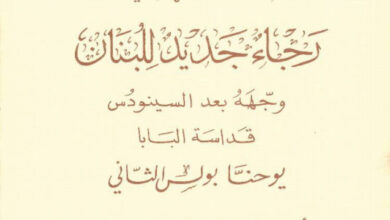 رَجَاءٌ جَديدٌ لِلُبنَان
وجّههُ بعد السينودُس
قداسة البابا
يوحنّا بولس الثّاني